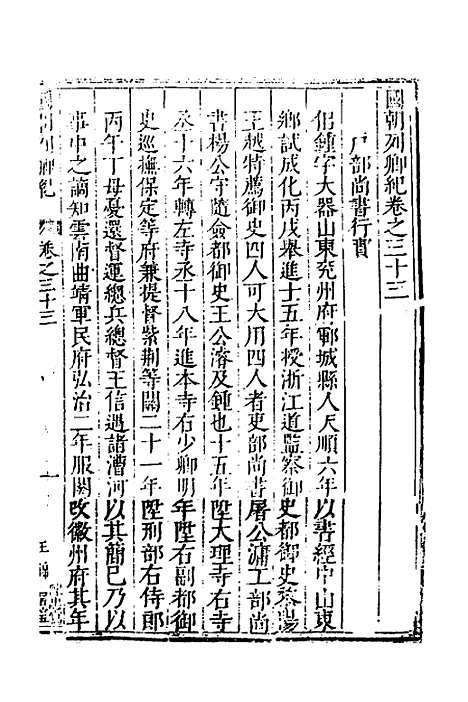 國朝列卿紀卷之三十三
戶部尚書行實
侶鍾字大器山東兖州府鄆城縣人天順六年以書經中山東
鄉試成化丙戌舉進士五年授浙江道監察御史都御史滁陽
王越特薦御史四人可大用四人者吏部尚書屠公滽工部尚
書楊公守隨僉都御史王公濬及鍾也十五年陞大理寺右寺
丞十六年轉左寺丞十八年進本寺右少卿明年陞右副都御
史巡撫保定等府兼提督紫荆等關二十一年陞刑部右侍郎
丙午丁母憂還督運總兵總督王信遇諸漕河以其簡已乃以
事中之謫知雲南曲靖軍民府弘治二年服闋改徽州府其年
國朝列卿紀 卷之三十三